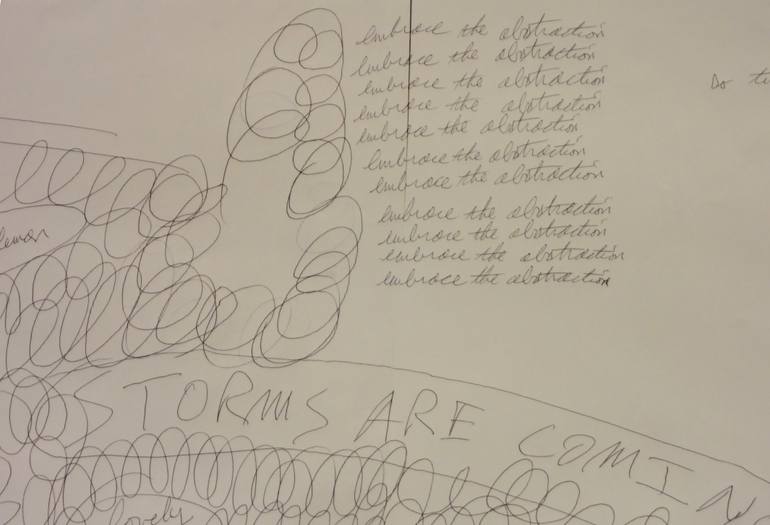 embrace the abstraction
embrace the abstraction
embrace the abstraction
embrace the abstraction
embrace the abstraction
embrace the abstraction
embrace the abstraction
embrace the abstraction
embrace the abstraction
embrace the abstraction
embrace the abstraction
Do
STORMS ARE COMIN
lovely